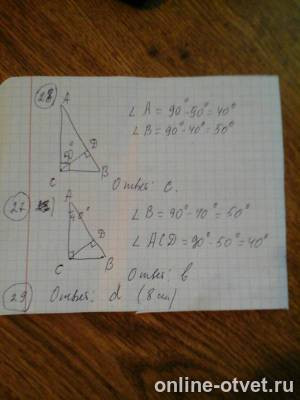 28
A
∠A = 90°-50° = 40°
∠B = 90°-40° = 50°
50°
D
C
B
Ответ: c.
27)
A
40°
∠B = 90°-40° = 50°
D
∠ACD = 90°-50° = 40°
C
B
Ответ: b
29 Ответ: d (8 см)
online-otvet.ru